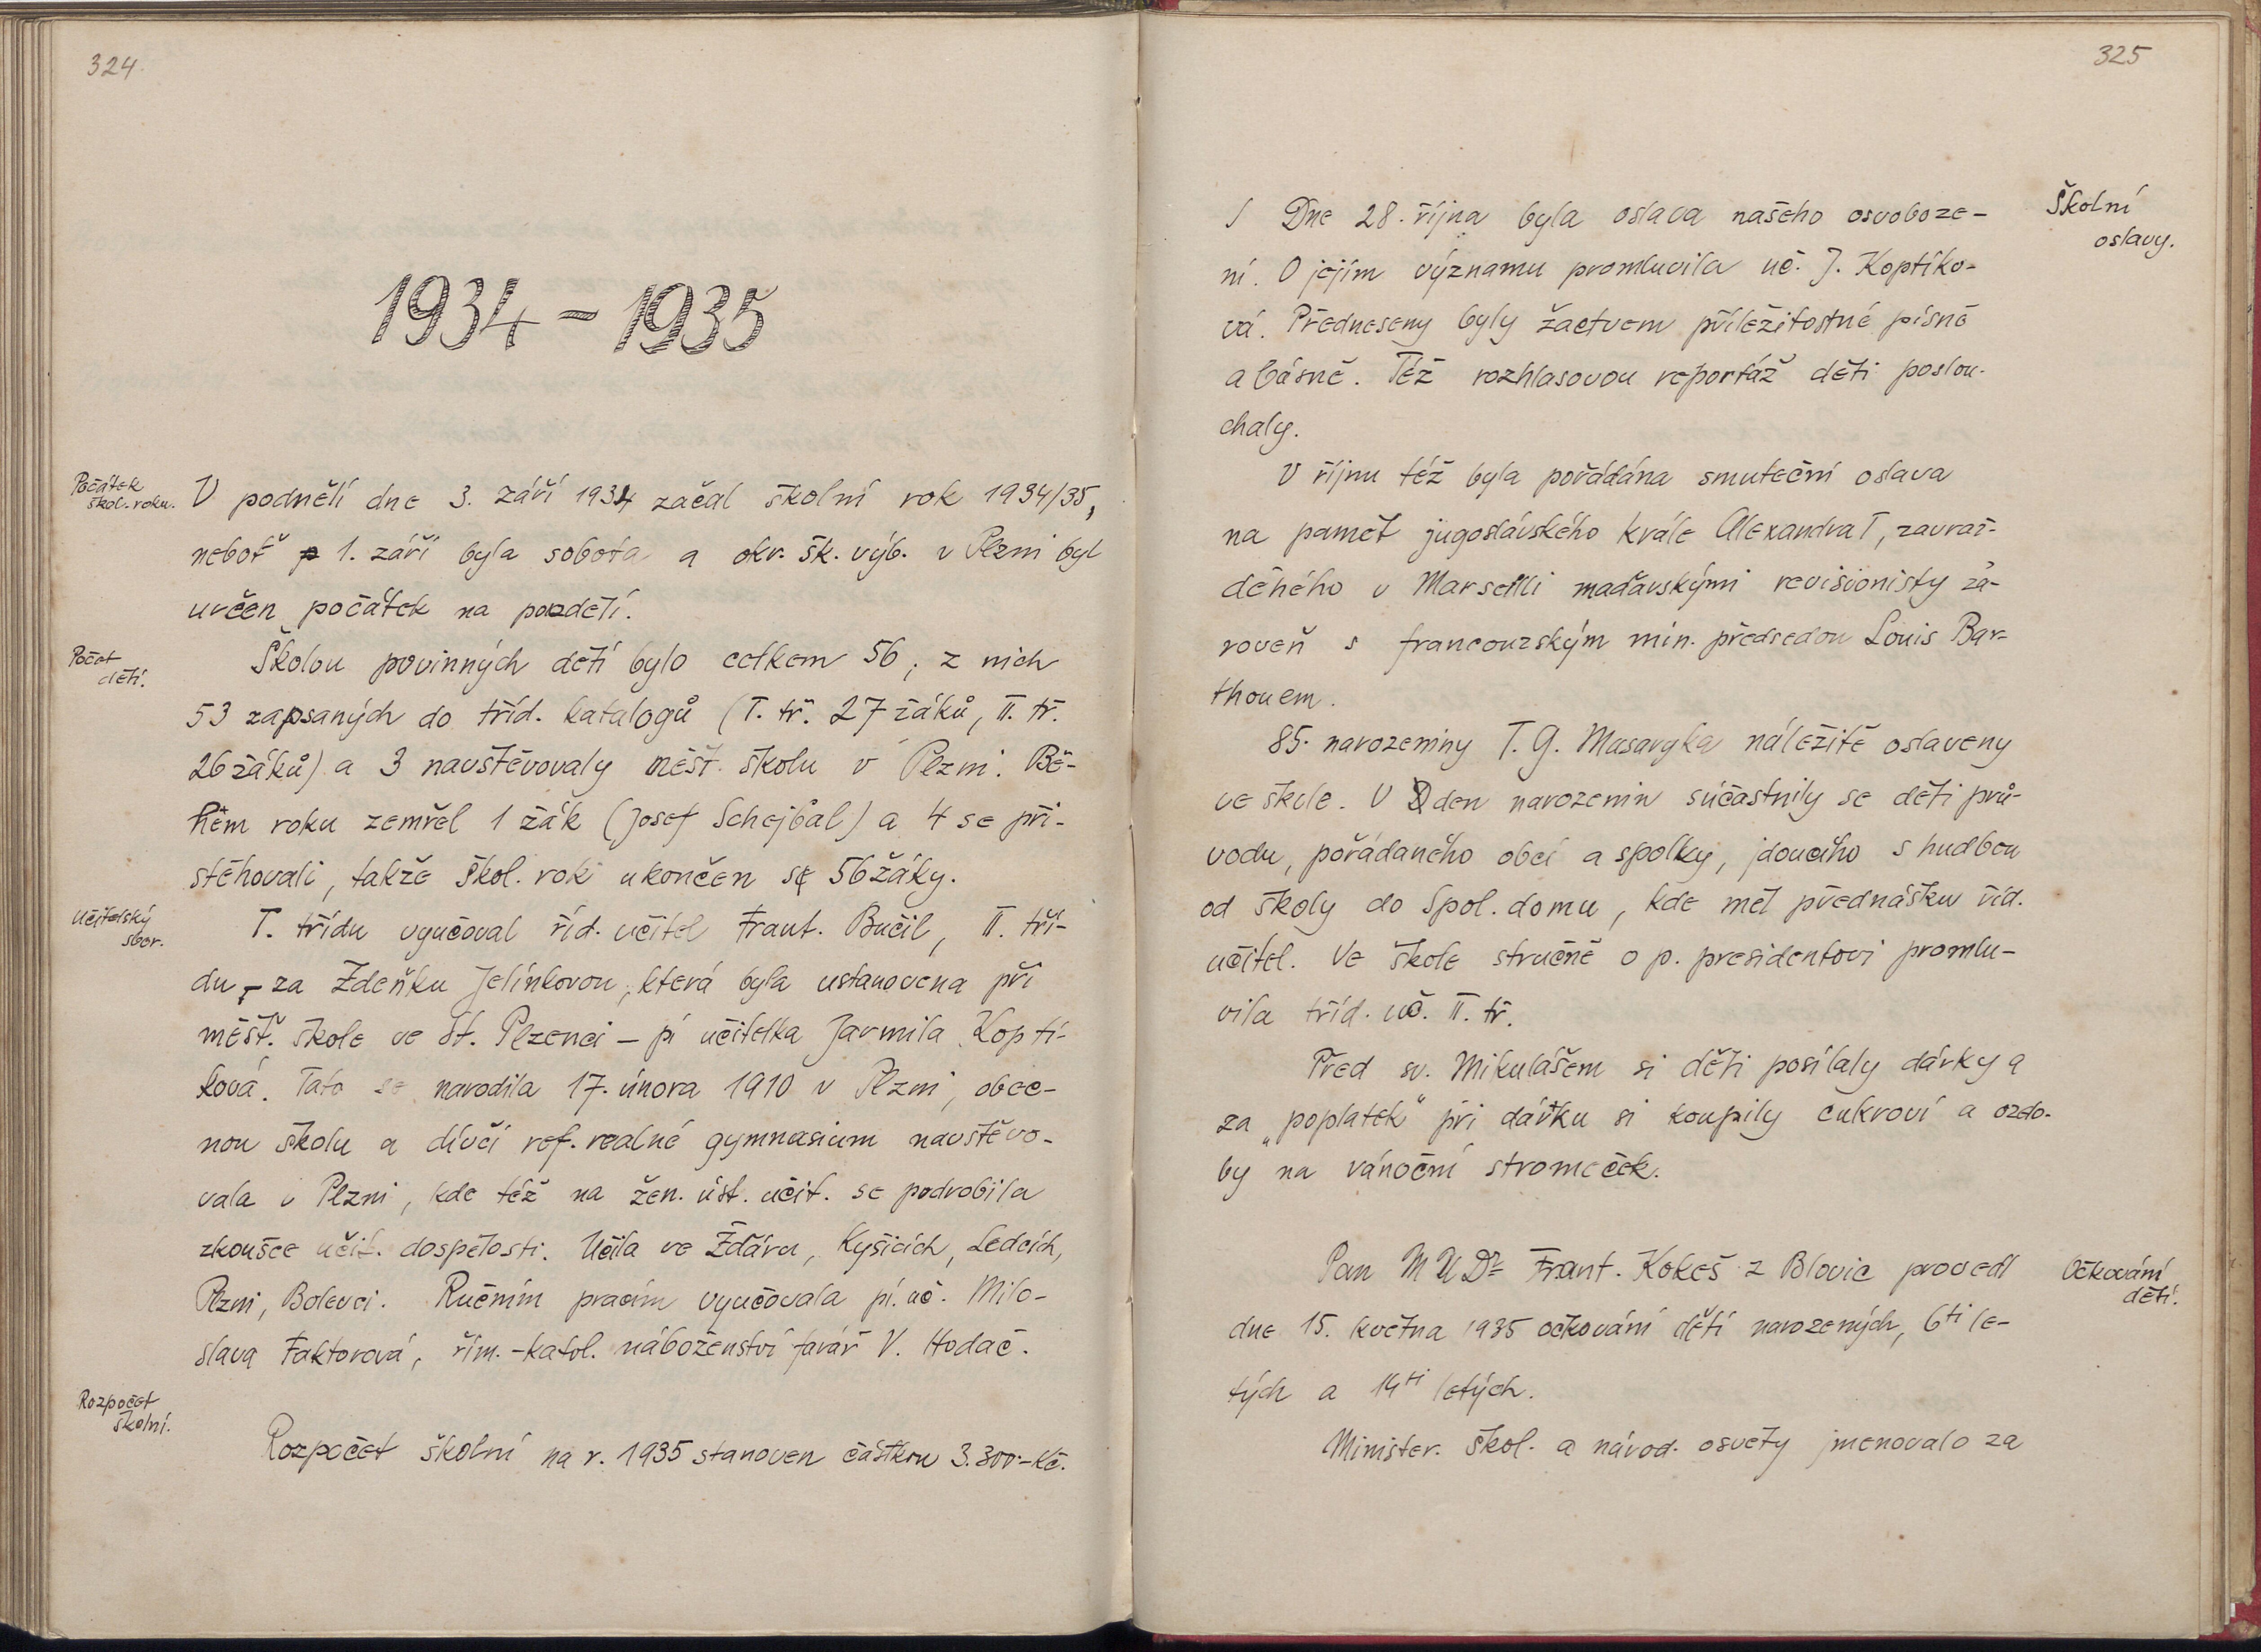 324.
1934 - 1935
Počátek
škol. roku.
V podnělí dne 3. září 1934 začal školní rok 1934/35,
neboť 1. září byla sobota a okr. šk. výb. v Plzni byl
určen počátek na pozdělí.
Počet
dětí.
Školou povinných dětí bylo celkem 56; z nich
53 zapsaných do tříd. katalogů (I. tř. 27 žáků, II. tř.
26 žáků) a 3 navštěvovaly měšť. školu v Plzni. Bě-
hem roku zemřel 1 žák (Josef Schejbal) a 4 se při-
stěhovali, takže škol. rok ukončen se 56 žáky.
Učitelský
sbor.
I. třídu vyučoval říd. učitel Frant. Bučil, II. tří-
du, - za Zdeňku Jelínkovou, která byla ustanovena při
měšť. škole ve St. Plzenci - pí učitelka Jarmila Koptí-
ková. Tato se narodila 17. února 1910 v Plzni, obec-
nou školu a dívčí ref. realné gymnasium navštěvo-
vala v Plzni, kde též na žen. úst. učit. se podrobila
zkoušce učit. dospělosti. Učila ve Žďáru, Kyšicích, Ledcích,
Plzni, Bolevci. Ručním pracím vyučovala pí. uč. Milo-
slava Faktorová, řím.-katol. náboženství farář V. Hodač.
Rozpočet
školní.
Rozpočet školní na r. 1935 stanoven částkou 3.300.- Kč.
325
Školní
oslavy.
Dne 28. října byla oslava našeho osvoboze-
ní. O jejím významu promluvila uč. J. Koptíko-
vá. Předneseny byly žactvem příležitostné písně
a básně. Též rozhlasovou reportáž děti poslou-
chaly.
V říjnu též byla pořádána smuteční oslava
na paměť jugoslávského krále Alexandra I, zavraž-
děného v Marseilli maďarskými revisionisty zá-
roveň s francouzským min. předsedou Louis Bar-
thouem.
85. narozeniny T. G. Masaryka náležitě oslaveny
ve škole. V den narozenin súčastnily se děti prů-
vodu, pořádaného obcí a spolky, jdoucího s hudbou
od školy do Spol. domu, kde měl přednášku říd.
učitel. Ve škole stručně o p. presidentovi promlu-
vila tříd. uč. II. tř.
Před sv. Mikulášem si děti posílaly dárky a
za „poplatek" při dárku si koupily cukroví a ozdo-
by na vánoční stromeček.
Očkování
dětí.
Pan MUDr Frant. Kokeš z Blovic provedl
dne 15. května 1935 očkování dětí narozených, 6ti le-
tých a 14ti letých.
Minister. škol. a národ. osvěty jmenovalo za